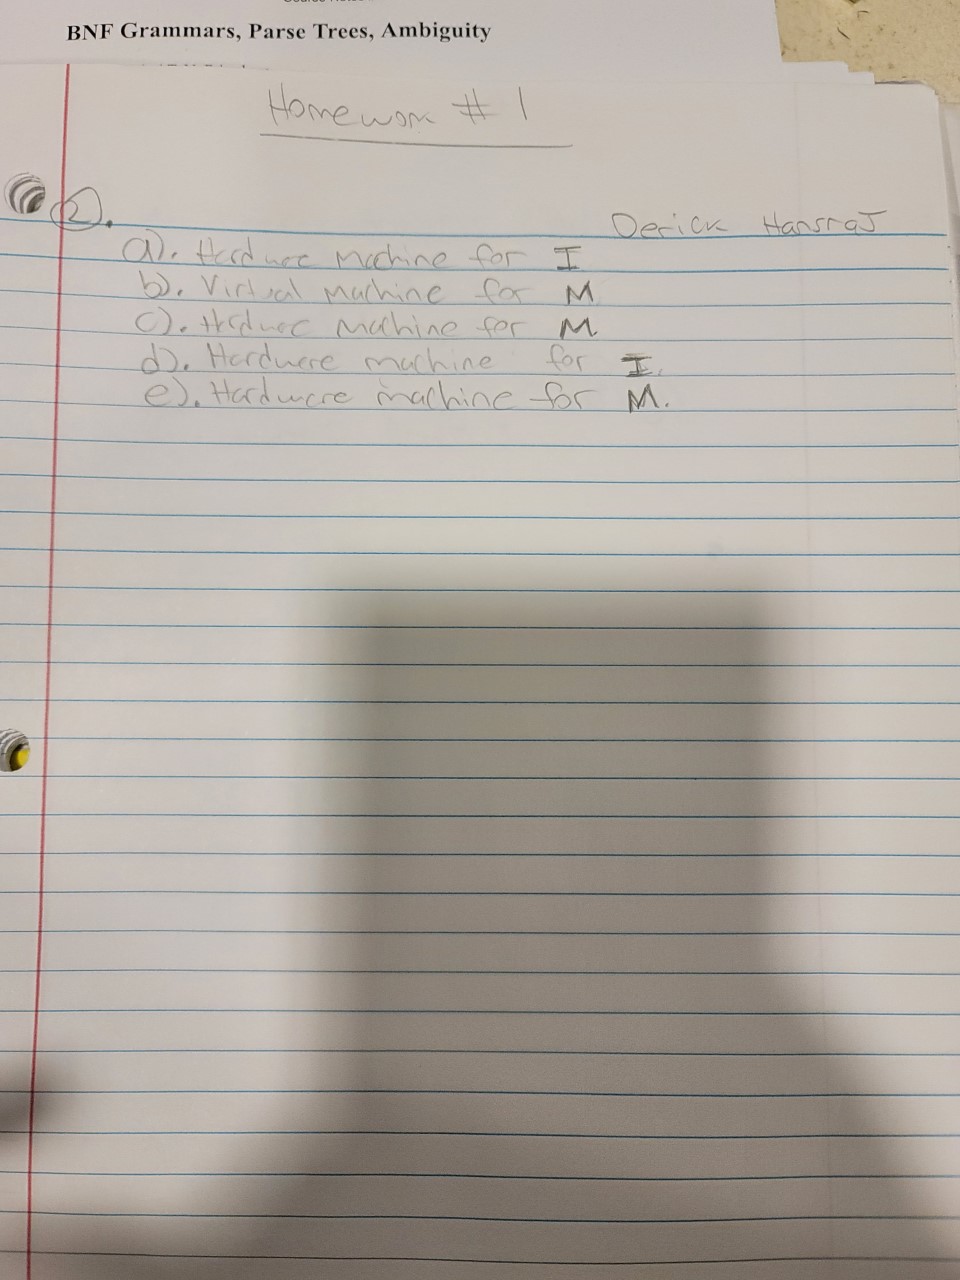 BNF Grammars, Parse Trees, Ambiguity
Homework # 1
2.
Derick Hansraj
a). Hardware Machine for I
b). Virtual Machine for M
c). Hardware Machine for M
d). Hardware machine for I.
e). Hardware machine for M.